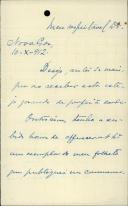 Meu respeitável Sr.
Nova Goa,
10-X-912.
Desejo, antes de mais,
que ao receber esta este-
ja gosando de perfeita saude.
Outrosim, tenho a su-
bida honra de offerecer a
um exemplar do meu folheto
que publiquei em